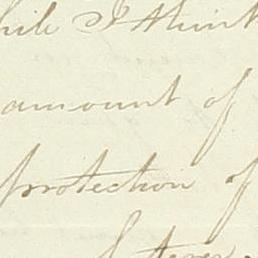 hile I think
amount of
protection of